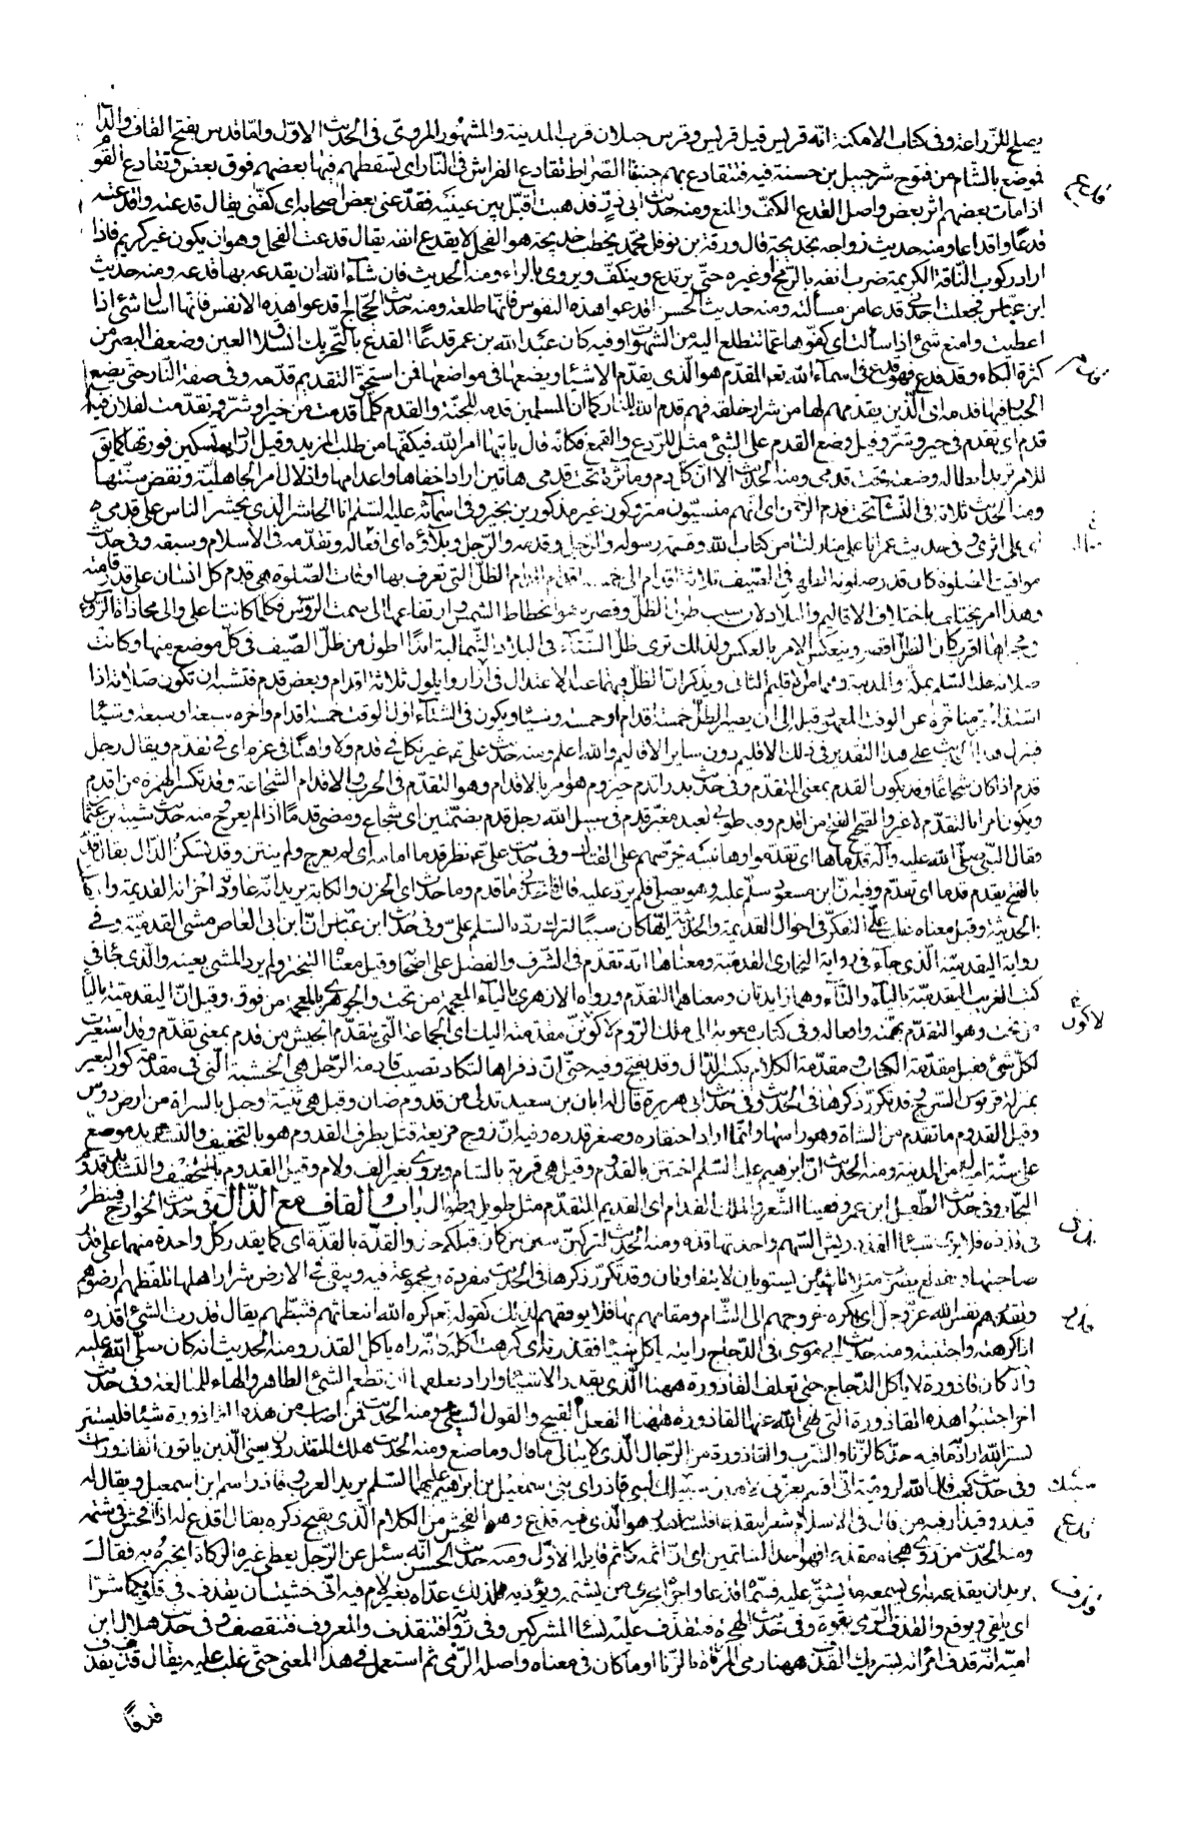 يصلح للزراعة وفى كتاب الامكنة انه قريس قيل قريس وقرس جبلان قرب المدينة والمشهور المروى فى الحديث الاول واما قدس بفتح القاف والدا
فموضع بالشام من فتوح شرحبيل بن حسنة فيه فتتقادع بهم جنبتا الصراط تقادع الفراش فى النار اى تسقطهم فيها بعضهم فوق بعض وتقادع القو
قدع
اذا مات بعضهم اثر بعض واصل القدع الكف والمنع ومنه حديث ابى ذر فذهبت اقبل بين عينيه فقدعنى بعض اصحابه اى كفنى يقال قدعته واقدعته
قدعا واقداعا ومنه حديث زواجه بخديجة قال ورقة بن نوفل محمد يخطب خديجة هو الفحل لا يقدع انفه يقال قدعت الفحل وهو ان يكون غير كريم فاذا
اراد ركوب الناقة الكريمة ضرب انفه بالرمح او غيره حتى يرتدع وينكف ويروى بالراء ومنه الحديث فان شآء الله ان يقدعه بها قدعه ومنه حديث
ابن عباس فجعلت اجد بى قدعا من مسألته ومنه حديث الحسن اقدعوا هذه النفوس فانها طلعة ومنه حديث الحجاج اقدعوا هذه الانفس فانها اسأل شئ اذا
اعطيت وامنع شئ اذا سألت اى كفوها عما تتطلع اليه من الشهوات وفيه كان عبد الله بن عمر قدعا القدع بالتحريك انسلاق العين وضعف البصر من
كثرة البكاء وقد قدع فهو قدع فى اسمآء الله تعم المقدم هو الذى يقدم الاشيا ويضعها فى مواضعها فمن استحق التقديم قدمه وفى صفة النار حتى يضع
قدم
الجبار فيها قدمه اى الذين يقدمهم لها من شرار خلقه فهم قدم الله للنار كما ان المسلمين قدمه للجنة والقدم كلما قدمت من خير او شر وتقدمت لفلان فيه
قدم اى تقدم فى خير وشر وقيل وضع القدم على الشئ مثل للردع والقمع فكانه قال ياتيها امر الله فيكفها من طلب المزيد وقيل اراد به تسكين فورتها كما يق
للامر تريد ابطاله وضعته تحت قدمى ومنه الحديث الا ان كل دم ومأثرة تحت قدمى هاتين اراد اخفاها واعدامها واذلال امر الجاهلية ونقض سنتها
ومنه الحديث ثلاثة فى المنسآ تحت قدم الرحمن اى انهم منسيون متروكون غير مذكورين بخير وفى اسمآئه عليه السلم انا الحاشر الذى يحشر الناس على قدمى
اى على اثرى وفى حديث عمر انا على منازلنا من كتاب الله وقسمة رسوله والرجل وقدمه والرجل وبلاؤه اى افعاله وتقدمه فى الاسلام وسبقه وفى حديث
مواقيت الصلوة كان قدر صلوته الظهر فى الصيف ثلاثة اقدام الى خمسة اقدام اقدام الظل التى تعرف بها اوقات الصلوة هى قدم كل انسان على قدر قامته
وهذا امر يختلف باختلاف الاقاليم والبلاد لان سبب طول الظل وقصره هو انحطاط الشمس وارتفاعها الى سمت الرؤس فكلما كانت اعلى والى محاذاة الرؤس
فى مجراها اقرب كان الظل اقصر وينعكس الامر بالعكس ولذلك ترى ظل الشتآء فى البلاد الشمالية ابدا اطول من ظل الصيف فى كل موضع منها وكانت
صلاته عليه السلم بمكة والمدينة وهما من الاقليم الثانى ويذكر ان الظل فيهما عند الاعتدال فى آزار وايلول ثلاثة اقدام وبعض قدم فتشبه ان تكون صلاته اذا
اشتد الحر متاخرة عن الوقت المعهود قبله الى ان يصير الظل خمسة اقدام او خمسة وشيئا ويكون فى الشتآء اول الوقت خمسة اقدام واخره سبعة او سبعة وشيئا
فينزل هذا الحديث على هذا التقدير فى ذلك الاقليم دون ساير الاقاليم والله اعلم ومنه حديث على تم غير نكل فى قدم ولا واهنا فى عزم اى فى تقدم ويقال رجل
قدم اذا كان شجاعا وقد يكون القدم بمعنى المتقدم وفى حديث بدر اقدم حيزوم هو امر بالاقدام وهو التقدم فى الحرب والاقدام الشجاعة وقد تكسر الهمزة من اقدم
ويكون امرا بالتقدم لا غير والصحيح الفتح من اقدم وفيه طوبى لعبد مغبر قدم فى سبيل الله رجل قدم بضمتين اى شجاع ومضى قدما اذا لم يعرج منه حديث شيبة بن عثما
فقال النبى صلى الله عليه وآله قدما ها اى تقدموا وها تنبيه حرضهم على القتال وفى حديث على تم نظر قدما امامه اى لم يعرج ولم ينثن وقد تسكن الدال يقال قدم
بالفتح يقدم قدما اى تقدم وفيه ان ابن مسعود سلم عليه وهو يصلى فلم يرد عليه قال فاخذنى ما قدم وما حدث اى الحزن والكآبة يريد انه عاودته احزانه القديمة واتصلت
بالحديثة وقيل معناه غلب على التفكر فى احوالى القديمة والحديثة ايها كان سببا لترك رده السلم على وفى حديث ابن عباس ان ابن ابى العاص مشى القدمية وفى
رواية اليقدمية الذى جآء فى رواية البخارى القدمية ومعناها انه تقدم فى الشرف والفضل على اصحابه وقيل معناه التبختر ولم يرد المشى بعينه والذى جآء فى
كتب الغريب اليقدمية بالياء والتاء وهما زايدتان ومعناهما التقدم ورواه الازهرى بالياء المعجمة من تحت والجوهرى بالمعجمة من فوق وقيل ان اليقدمية بالياء
من تحت وهو التقدم بهمته وافعاله وفى كتاب معوية الى ملك الروم لاكونن مقدمته اليك اى الجماعة التى تتقدم الجيش من قدم بمعنى تقدم وقد استعيرت
لاكون
لكل شئ فقيل مقدمة الكتاب ومقدمة الكلام بكسر الدال وقد تفتح وفيه حتى ان ذفراها لتكاد تصيب قادمة الرحل هى الخشبة التى فى مقدمة كور البعير
بمنزلة قربوس السرج وقد تكرر ذكرها فى الحديث وفى حديث ابى هريرة قال له ابان بن سعيد تدلى من قدوم ضان وقيل هى ثنية او جبل بالسراة من ارض دوس
وقيل القدوم ما تقدم من الشاة وهو راسها وانما اراد احتقاره وصغر قدره وفيه ان زوج فريعة قتل بطرف القدوم هو بالتخفيف والتشديد موضع
على ستة اميال من المدينة ومنه الحديث ان ابرهيم عليه السلم اختتن بالقدوم وقيل هى قرية بالشام ويروى بغير الف ولام وقيل القدوم بالتخفيف والتشديد قدوم
النجار وفى حديث الطفيل ابن عمرو ففينا الشعر والملك القدام اى القديم المتقدم مثل طويل وطوال باب القاف مع الذال فى حديث الخوارج فينظر
فى قذذه فلا يرى شيئا القذذ ريش السهم واحدتها قذة ومنه الحديث لتركبن سنن من كان قبلكم حذو القذة بالقذة اى كما يقدر كل واحدة منهما على قدر
قذذ
صاحبتها وتقطع يضرب مثلا للشيئين يستويان لا يتفاوتان وقد تكرر ذكرها فى الحديث مفردة ومجموعة فيه ويبقى فى الارض شرار اهلها تلفظهم ارضوهم
وتقذرهم نفس الله عز وجل اى يكره خروجهم الى الشام ومقامهم بها فلا يوفقهم لذلك كقوله تعم كره الله انبعاثهم فثبطهم يقال قذرت الشئ اقذره
قذر
اذا كرهته واجتنبته ومنه حديث ابى موسى فى الدجاج رايته ياكل شيئا فقذرته اى كرهت اكله كانه راه ياكل القذر ومنه الحديث انه كان صلى الله عليه
وآله كان قاذورة لا ياكل الدجاج حتى تعلف القاذورة ههنا الذى يقذر الاشيا واراد بعلفها ان تطعم الشئ الطاهر والهاء للمبالغة وفى حديث
اخر اجتنبوا هذه القاذورة التى نهى الله عنها القاذورة ههنا الفعل القبيح والقول السيئ ومنه الحديث فمن اصاب من هذه القاذورة شيئا فليستتر
بستر الله اراد ما فيه حد كالزنا والشرب والقاذورة من الرجال الذى لا يبالى ما قال وما صنع ومنه الحديث هلك المقذرون يعنى الذين ياتون القاذورات
وفى حديث كعب قال الله لرومية انى اقسم بعزتى لاهبن سبيك لبنى قاذر اى بنى اسمعيل بن ابرهيم عليهما السلم يريد العرب وقاذر اسم ابن اسمعيل ويقال له
سبيك
قيذر وقيذار فيه من قال فى الاسلام شعرا مقذعا فلسانه هدر هو الذى فيه قذع وهو الفحش من الكلام الذى يقبح ذكره يقال اقذع له اذا افحش فى شتمه
قذع
ومنه الحديث من روى هجاء مقذعا فهو احد الشاتمين اى ان اثمه كاثم قايله الاول ومنه حديث الحسن انه سئل عن الرجل يعطى غيره الزكاة ايخبره به فقال
يريد ان يقذعه به اى يسمعه ما يشق عليه فسماه قذعا واجراه مجرى من يشتمه ويؤذيه فلذلك عداه بغير لام فيه انى خشيت ان يقذف فى قلوبكما شرا
قذف
اى يلقى ويوقع والقذف الرمى بقوة وفى حديث الهجرة فتنقذف عليه نسآ المشركين وفى رواية فتتقذف والمعروف فتتقصف وفى حديث هلال ابن
امية انه قذف امراته بشريك القذف ههنا رمى المرأة بالزنا او ما كان فى معناه واصله الرمى ثم استعمل فى هذا المعنى حتى غلب عليه يقال قذف يقذف
قذفا